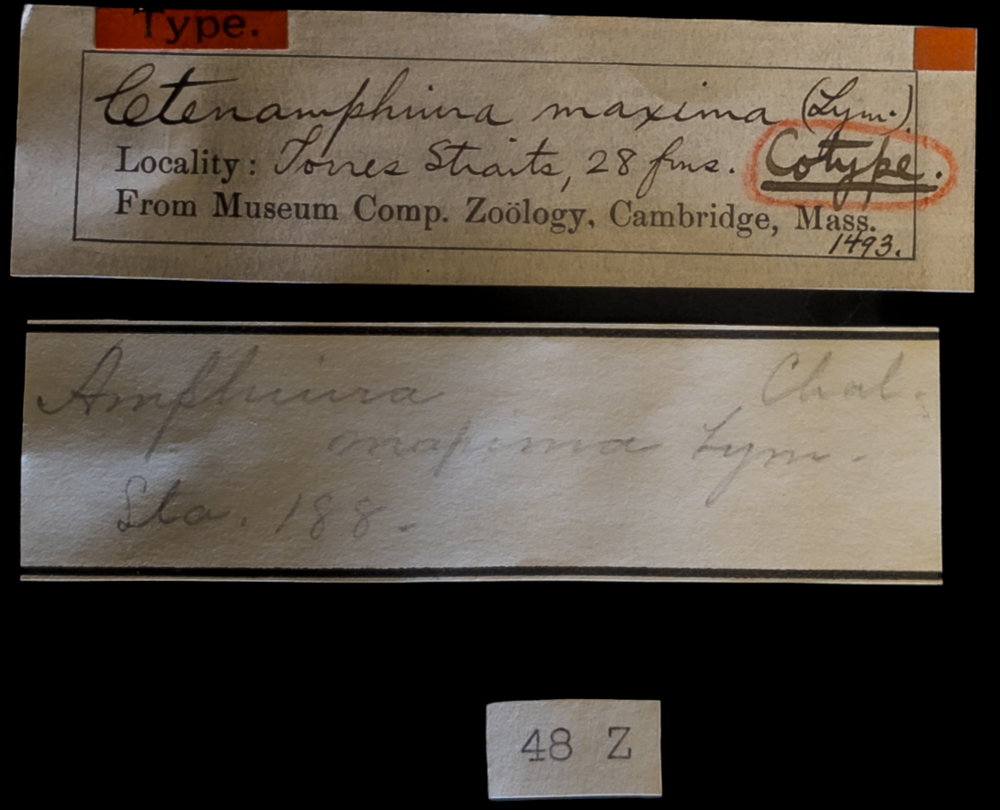 Type.
Ctenamphiura maxima (Lym.).
Locality: Torres Straits, 28 fms. Cotype.
From Museum Comp. Zoölogy, Cambridge, Mass.
1493.
Amphiura Chal.
maxima Lym.
Sta. 188.
48 Z